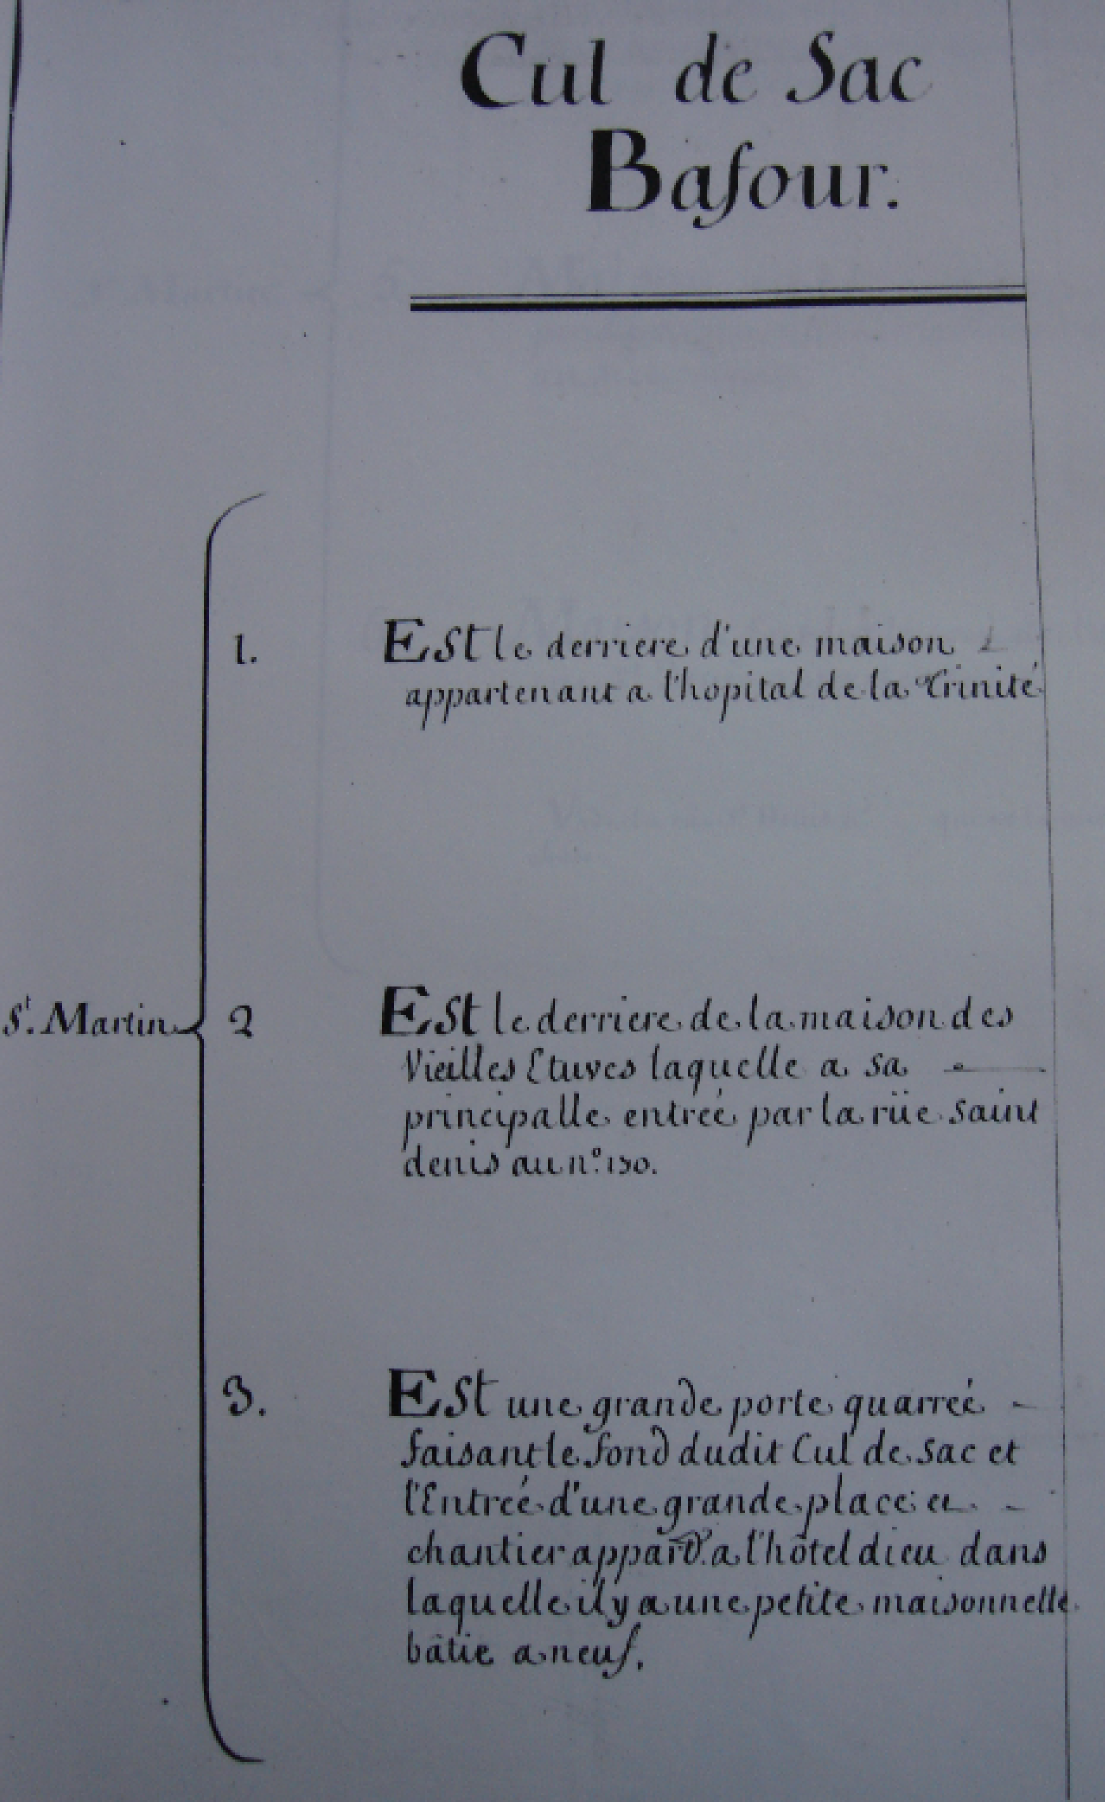 Cul de Sac
Basour.
1. Est le derriere d'une maison
appartenant a l'hopital de la Trinité
St. Martin
2 Est le derriere de la maison des
Vieilles Etuves laquelle a sa
principalle entreé par la rüe Saint
denis au n° 130.
3. Est une grande porte quarreé
faisant le fond dudit Cul de Sac et
l'Entreé d'une grande place et
chantier appart. a l'hôtel dieu dans
laquelle il y a une petite maisonnette
bâtie a neuf.